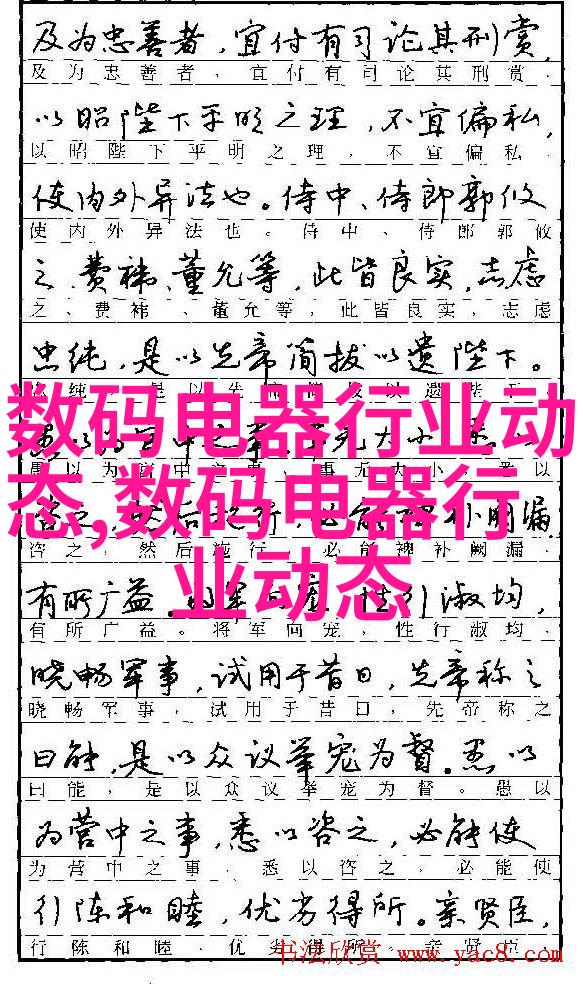 及为忠善者，宜付有司论其刑赏，
及为忠善者，宜付有司论其刑赏，
以昭陛下平明之理，不宜偏私，
以昭陛下平明之理，不宜偏私，
使内外异法也。侍中、侍郎郭攸
使内外异法也。侍中、侍郎郭攸
之、费祎、董允等，此皆良实，志虑
之、费祎、董允等，此皆良实，志虑
忠纯，是以先帝简拔以遗陛下。
数码电器行业动
态,数码电器行
业动态
咨之，然后施行，必能裨补阙漏，
有所广益。
有所广益。将军向宠，性行淑均，
晓畅军事，试用于昔日，先帝称之
晓畅军事，试用于昔日，先帝称之
曰能，是以众议举宠为督。愚以
曰能，是以众议举宠为督。愚以
为营中之事，悉以咨之，必能使
为营中之事，悉以咨之，必能使
行陈和睦，优劣得所。亲贤臣，
行陈和睦，优劣得所。亲贤臣，
书法欣赏 www.yac8.com